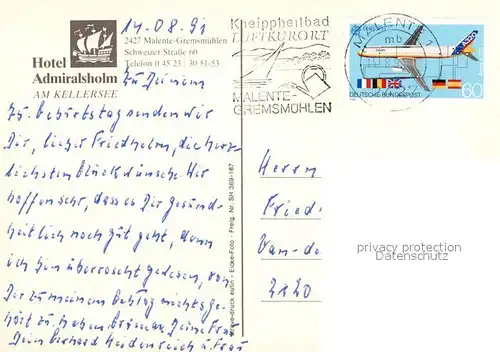 14.08.91
Hotel
Admiralsholm
AM KELLERSEE
2427 Malente-Gremsmühlen
Schweizer Straße 60
Telefon 0 45 23 / 30 51-53
Kneippheilbad
LUFTKURORT
MALENTE-
GREMSMÜHLEN
MALENTE 1
mb
DEUTSCHE BUNDESPOST
60
Zu Deinem
75. Geburtstag senden wir
Dir, lieber Friedhelm, die herz-
lichsten Glückwünsche. Wir
hoffen sehr, dass es Dir gesund-
heitlich noch gut geht, denn
ich bin überrascht gewesen, von
Dir zu meinem nichts ge-
hört zu haben. Deine Frau
Dein Gerhard Heidenreich u. Frau
Eicke-Foto - Freig. Nr. SH 369-187
Herrn
Fried
Van-de
2820
privacy protection
Datenschutz